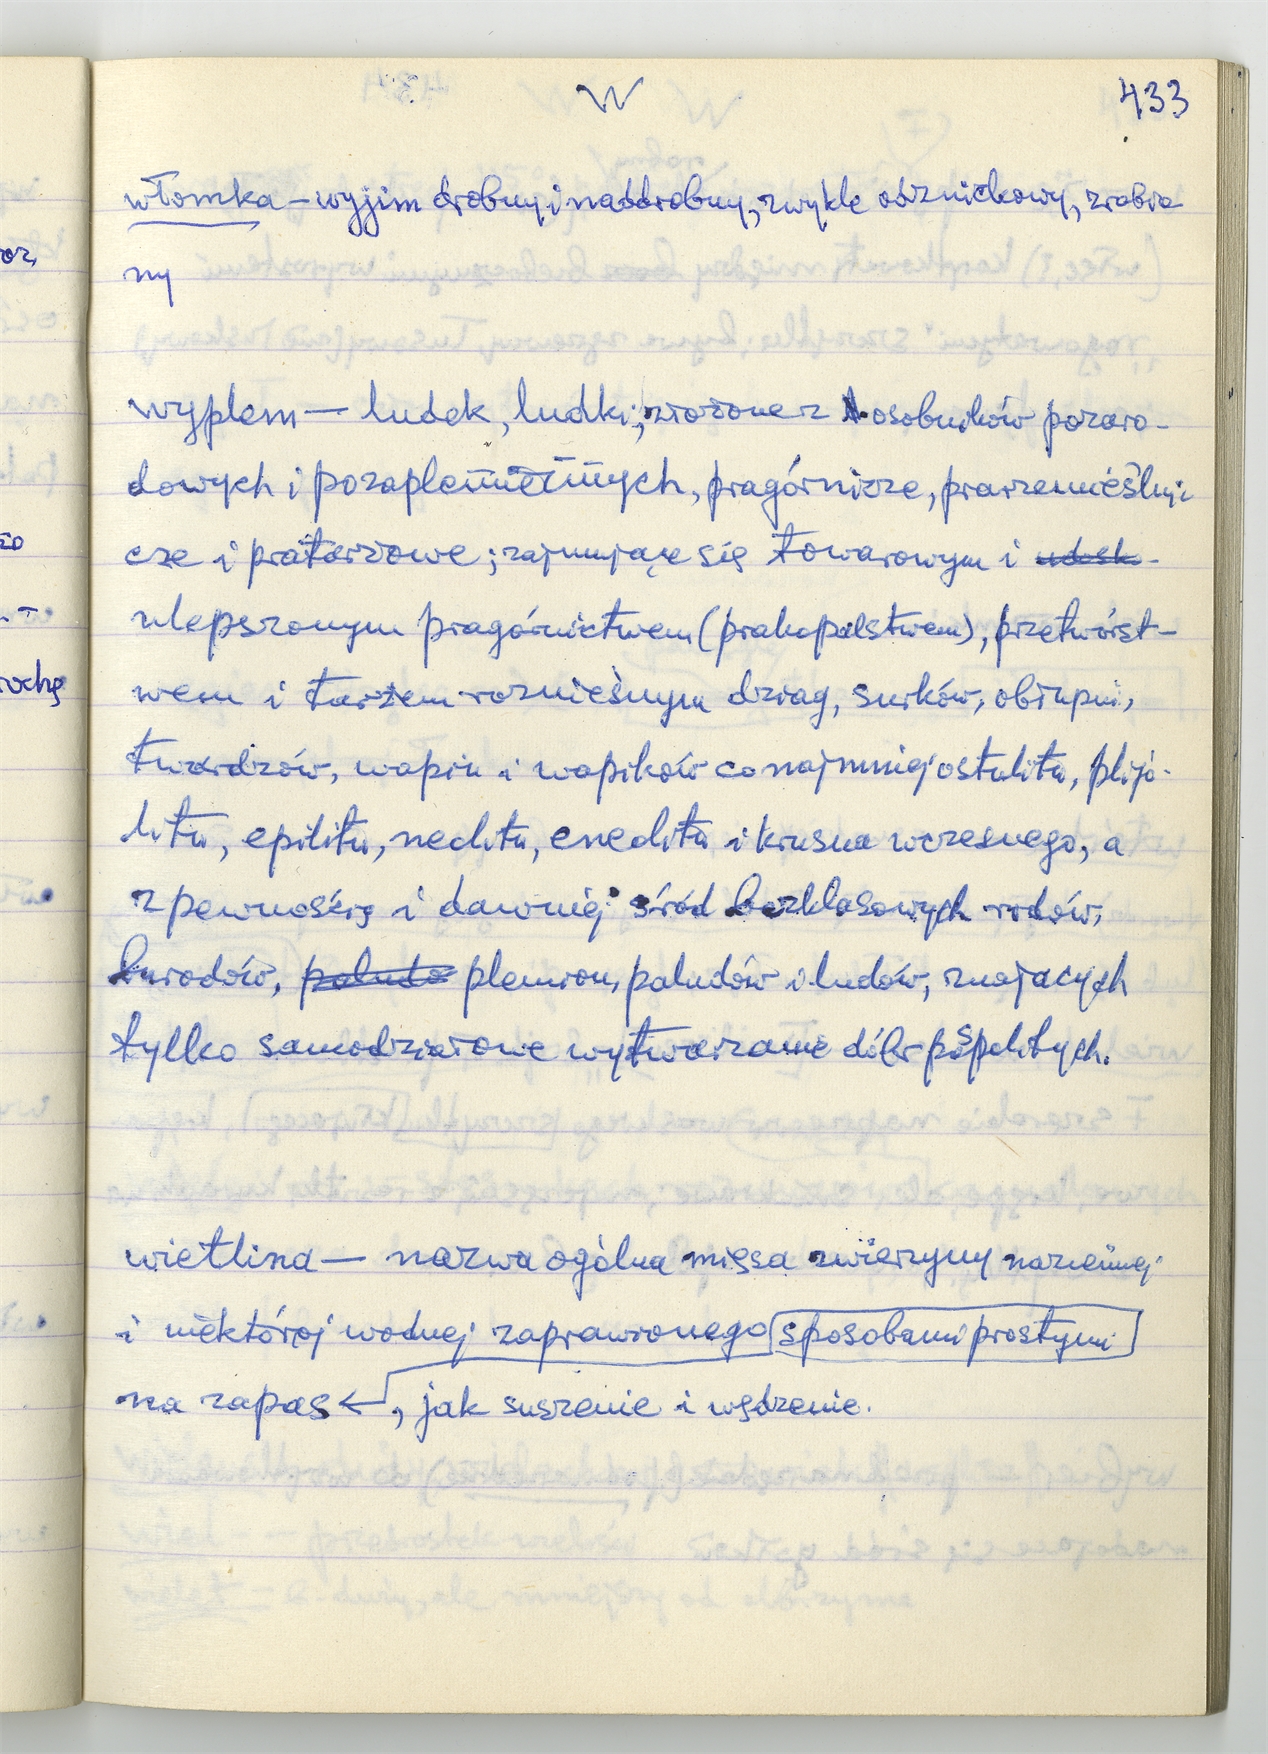 W
433
włomka – wyjim drobny i naddrobny, zwykle odrznickowy, zrobio
ny
wyplem — ludek, ludki; złożone z osobników pozaro-
dowych i pozaplemiennych, pragórnicze, prarzemieślni
cze i pratarżowe; zajmujące się towarowym i udosk-
ulepszonym pragórnictwem (prakopalstwem), przetwórst-
wem i tarżem roznieśnym dziag, surków, obłupni,
twardzów, wapiu i wapików co najmniej ostulitu, plijo-
litu, epilitu, neolitu, eneolitu i krusua wczesnego, a
z pewnością i dawniej śród bezklasowych rodów,
burodów, paludó plemion, paludów i ludów, znających
tylko samodziałowe wytwarzanie dóbr pospolitych.
wietlina — nazwa ogólna mięsa zwierzyny naziemnej
i niektórej wodnej zaprawionego sposobami prostymi
na zapas ←, jak suszenie i wędzenie.
oz,
zo
rochę